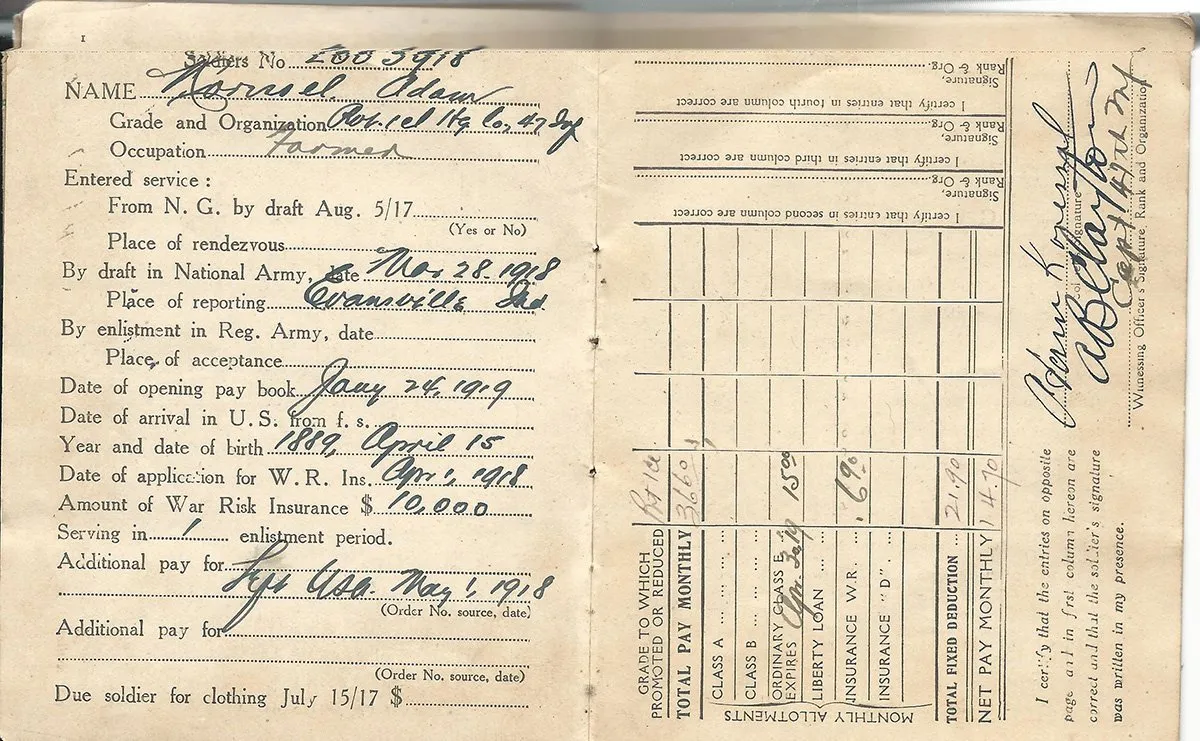 1
Soldiers No
NAME Adam
Grade and Organization Pvt 1cl Hq Co, 47 Inf
Occupation Farmer
Entered service :
From N. G. by draft Aug. 5/17
(Yes or No)
Place of rendezvous
By draft in National Army, date Mar 28. 1918
Place of reporting Evansville Ind.
By enlistment in Reg. Army, date
Place of acceptance
Date of opening pay book Jany 24, 1919
Date of arrival in U. S. from f. s.
Year and date of birth 1889, April 15
Date of application for W. R. Ins. Apr 1, 1918
Amount of War Risk Insurance $ 10,000
Serving in 1 enlistment period.
Additional pay for
Left USA. May 1, 1918
(Order No. source, date)
Additional pay for
(Order No. source, date)
Due soldier for clothing July 15/17 $
GRADE TO WHICH PROMOTED OR REDUCED Pvt 1cl
TOTAL PAY MONTHLY 3660
CLASS A
CLASS B
ORDINARY CLASS E 15 00
EXPIRES
LIBERTY LOAN
INSURANCE W.R. 6 90
INSURANCE "D"
MONTHLY ALLOTMENTS
TOTAL FIXED DEDUCTION 21.90
NET PAY MONTHLY 14.70
I certify that entries in second column are correct
Signature,
Rank & Org.
I certify that entries in third column are correct
Signature,
Rank & Org.
I certify that entries in fourth column are correct
Signature,
Rank & Org.
I certify that the entries on opposite
page and in first column hereon are
correct and that the soldier's signature
was written in my presence.
Signature
Capt 47th Inf
Witnessing Officer's Signature Rank and Organization